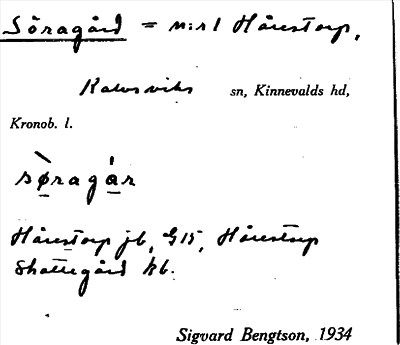 Söragård = n:r 1 Hårestorp,
Kalvsviks sn, Kinnevalds hd,
Kronob. l.
sø̱ragá̱r
Hårestorp jb, G15, Hårestorp
Skattegård kb.
Sigvard Bengtson, 1934